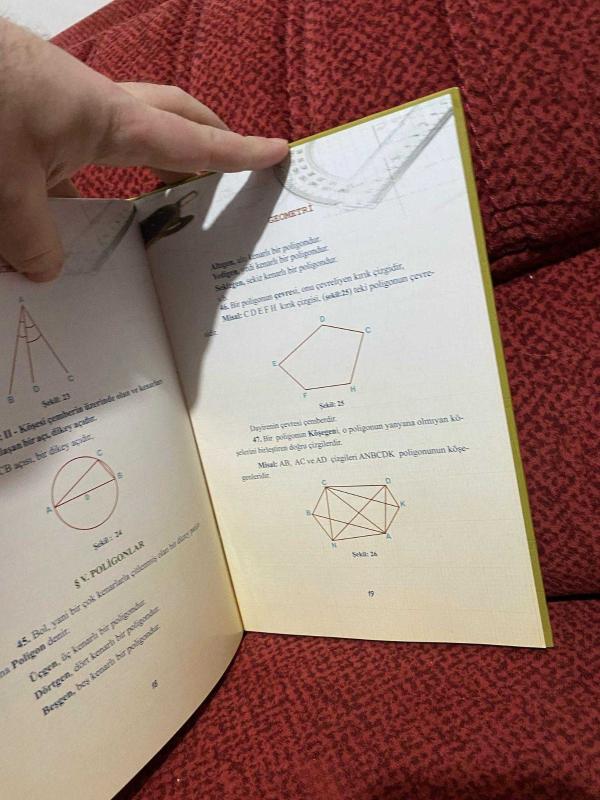 A
B
D
C
Şekil: 23
II - Köşesi çemberin üzerinde olan ve kenarları
bir açı, dikey açıdır.
CB açısı, bir dikey açıdır,
C
B
A
Şekil : 24
§ V. POLİGONLAR
45. Bol, yani bir çok kenarlarla çitlenmiş olan bir düzey
Poligon denir.
Üçgen, üç kenarlı bir poligondur.
Dörtgen, dört kenarlı bir poligondur.
Beşgen, beş kenarlı bir poligondur.
18
GEOMETRİ
Altıgen, altı kenarlı bir poligondur.
Yedigen, yedi kenarlı bir poligondur.
Sekizgen, sekiz kenarlı bir poligondur.
46. Bir poligonun çevresi, onu çevreliyen kırık çizgidir,
Misal: C D E F H kırık çizgisi, (şekil:25) teki poligonun çevre-
sidir.
D
C
E
F
H
Şekil: 25
Dayirenin çevresi çemberdir.
47. Bir poligonun Köşegeni, o poligonun yanyana olmıyan kö-
şelerini birleştiren doğru çizgilerdir.
Misal: AB, AC ve AD çizgileri ANBCDK poligonunun köşe-
genleridir.
C
D
B
K
N
A
Şekil: 26
19